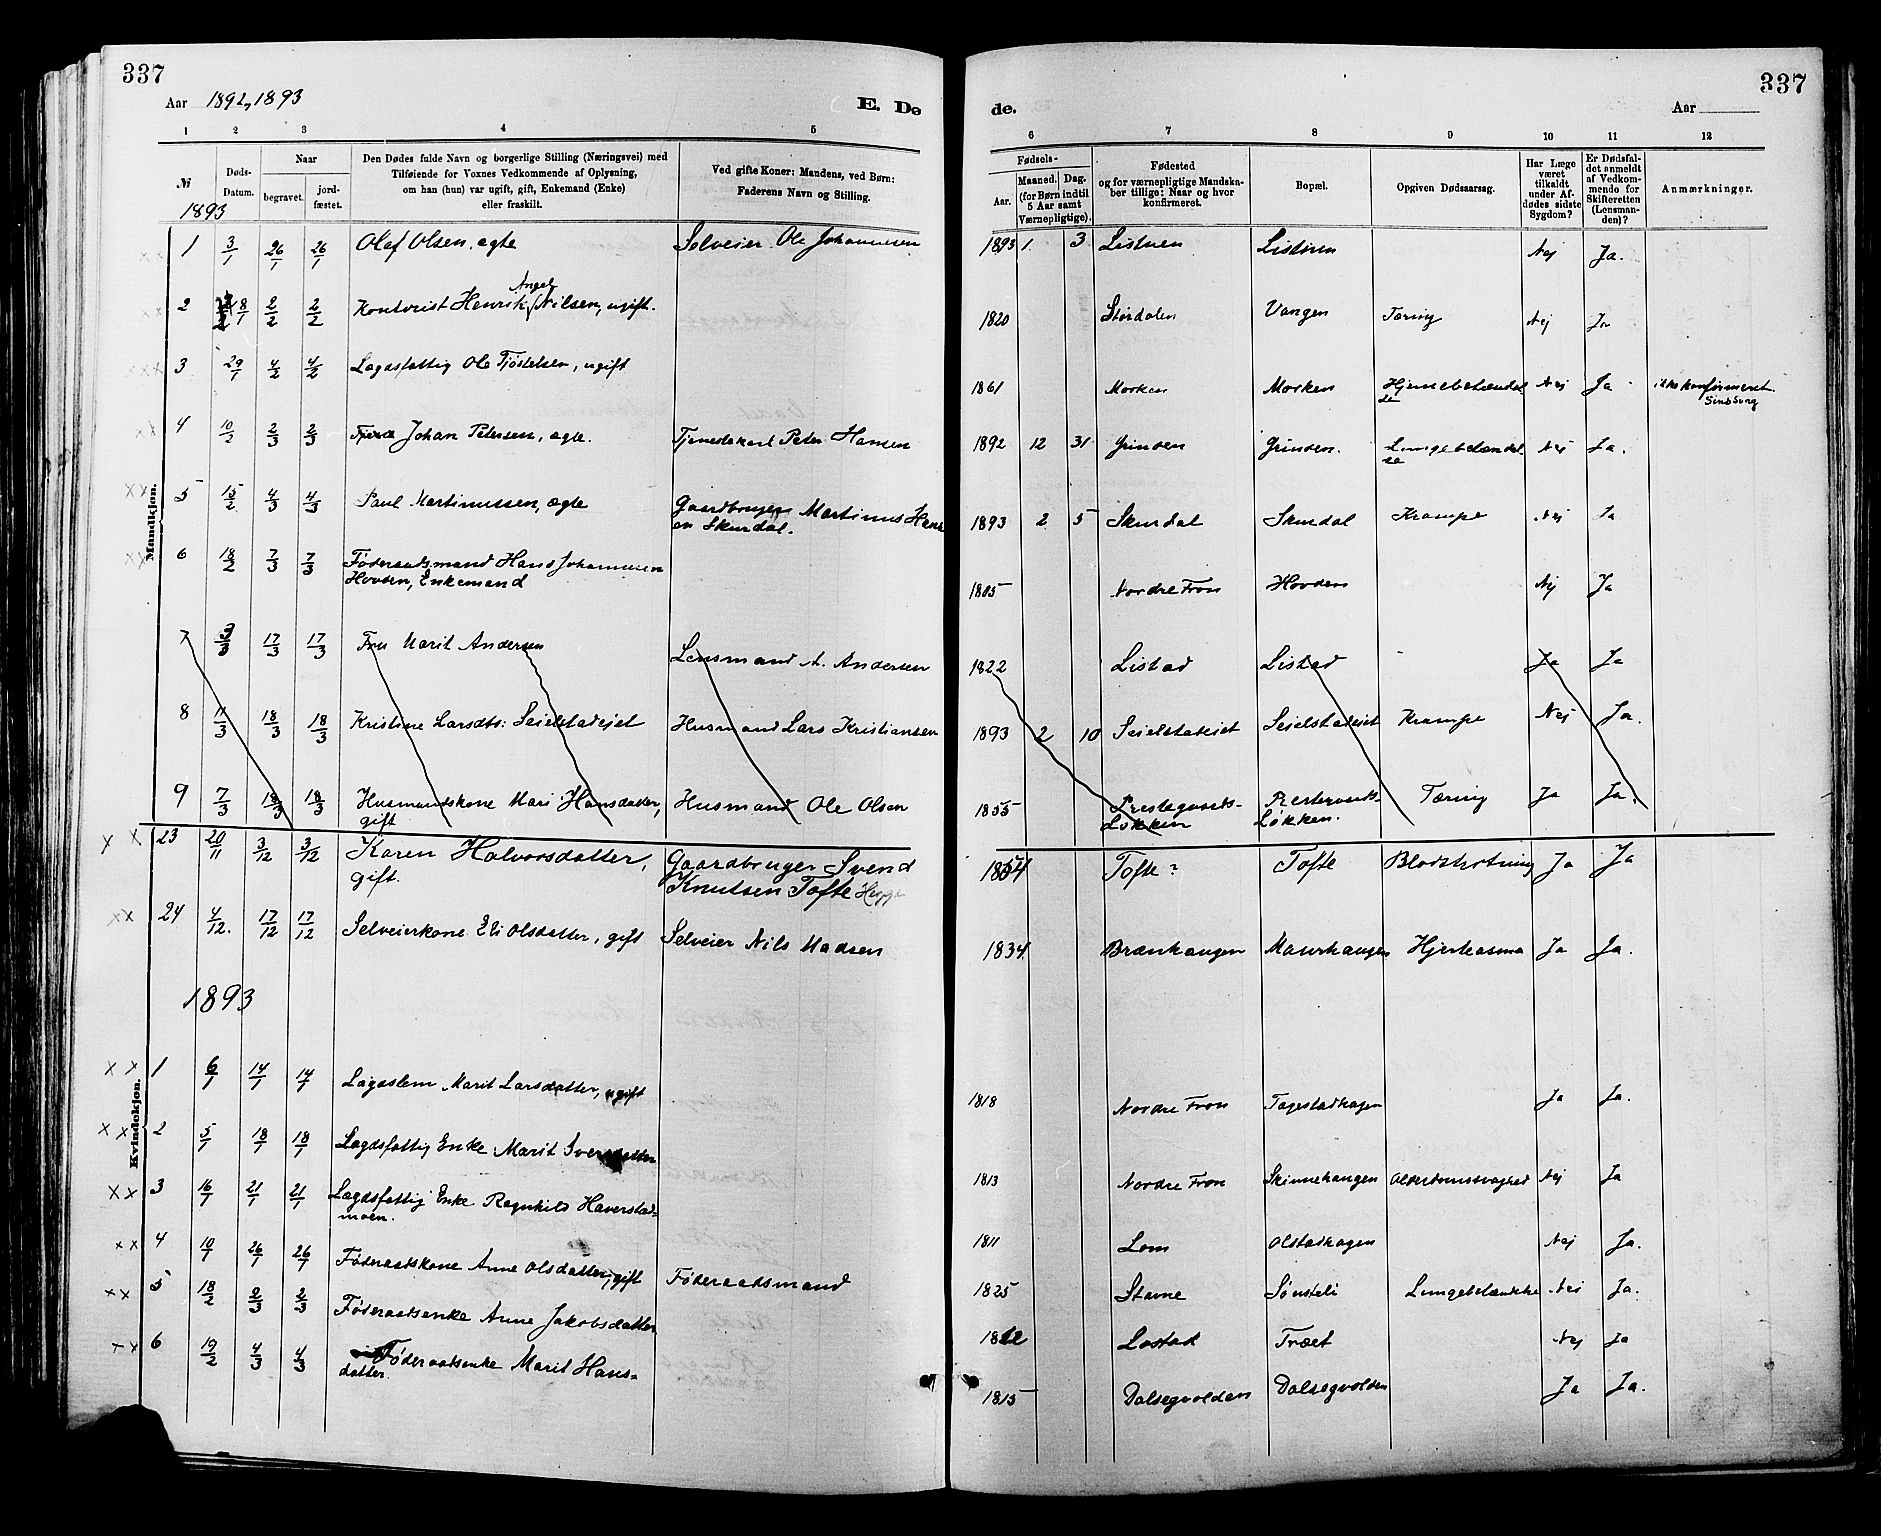 337
337
Aar 1892, 1893
E. Dø
de.
Aar
1 2 3 4 5 6 7 8 9 10 11 12
№
Døds-
Datum.
Naar
begravet.
jord-
fæstet.
Den Dødes fulde Navn og borgerlige Stilling (Næringsvei) med
Tilføiende for Voxnes Vedkommende af Oplysning,
om han (hun) var ugift, gift, Enkemand (Enke)
eller fraskilt.
Ved gifte Koner: Mandens, ved Børn:
Faderens Navn og Stilling.
Fødsels-
Aar.
Maaned. Dag.
(for Børn indtil
5 Aar samt
Værnepligtige).
Fødested
og for værnepligtige Mandska-
ber tillige: Naar og hvor
konfirmeret.
Bopæl.
Opgiven Dødsaarsag.
Har Læge
været
tilkaldt
under Af-
dødes sidste
Sygdom?
Er Dødsfal-
det anmeldt
af Vedkom-
mende for
Skifteretten
(Lensman-
den)?
Anmærkninger.
1893
Mandkjøn.
1 3/1 26/1 26/1 Olaf Olsen, ægte Selveier Ole Johannesen 1893 1. 3 Listuen Listuen Nej Ja.
Angel
2 18/1 2/2 2/2 Kontorist Henrik Nilsen, ugift. 1820 Størdalen Vangen Tæring Nej Ja
3 29/1 4/2 4/2 Lægdsfattig Ole Tjøstelsen, ugift 1861 Morken Morken Hjernebetændel
se Nej Ja ikke konfirmeret
Sindssvag
4 10/2 2/3 2/3 Johan Petersen, ægte. Tjenestekarl Peter Hansen 1892 12 31 Grinden Grinden. Lungebetændel
se Nej Ja.
5 15/2 4/3 4/3 Paul Martinussen, ægte Gaardbruger Martinus Hans
en Skurdal. 1893 2 5 Skurdal Skurdal Krampe Nej Ja
6 18/2 7/3 7/3 Føderaadsmand Hans Johannesen
Hovden, Enkemand 1805 Nordre Fron Hovden Nej Ja
7 3/3 17/3 17/3 Fru Marit Andersen Lensmand A. Andersen 1822 Listad Listad Ja Ja
8 11/3 18/3 18/3 Kristine Larsdts: Seielstadeiet Husmand Lars Kristiansen 1893 2 10 Seielstadeiet Seielstadeiet Krampe Nej Ja.
9 7/3 18/3 18/3 Husmandskone Mari Hansdatter,
gift Husmand Ole Olsen 1855 Prestegaards-
Løkken Prestegaards-
Løkken. Tæring Ja Ja.
23 20/11 3/12 3/12 Karen Halvorsdatter,
gift. Gaardbruger Svend
Knutsen Tofte 1854 Tofte? Tofte Blodstyrtning Ja Ja
24 4/12. 17/12 17/12 Selveierkone Eli Olsdatter, gift Selveier Nils Madsen 1834 Brænhaugen Maurhaugen Hjerteasma Ja Ja.
1893
Kvindekjøn.
1 6/1 14/1 14/1 Lægdslem Marit Larsdatter, ugift 1818 Nordre Fron Tagestadhagen Ja Ja.
2 5/1 18/1 18/1 Lægdsfattig Enke Marit Iversdatter 1813 Nordre Fron Skinnehaugen Alderdomssvaghed Nej Ja
3 16/1 21/1 21/1 Lægdsfattig Enke Ragnhild Haverstad-
moen. 1811 Lom Olstadhagen Nej Ja.
4 10/1 26/1 26/1 Føderaadskone Anne Olsdatter, gift Føderaadsmand 1825 Stavne Sønsteli Lungebetændelse Nei Ja.
5 18/2 2/3 2/3 Føderaadsenke Anne Jakobsdatter 1812 Lostad Træet Nej Ja
6 19/2 4/3 4/3 Føderaadsenke Marit Hans-
datter. 1815 Dalsegvolden Dalsegvolden Ja Ja.